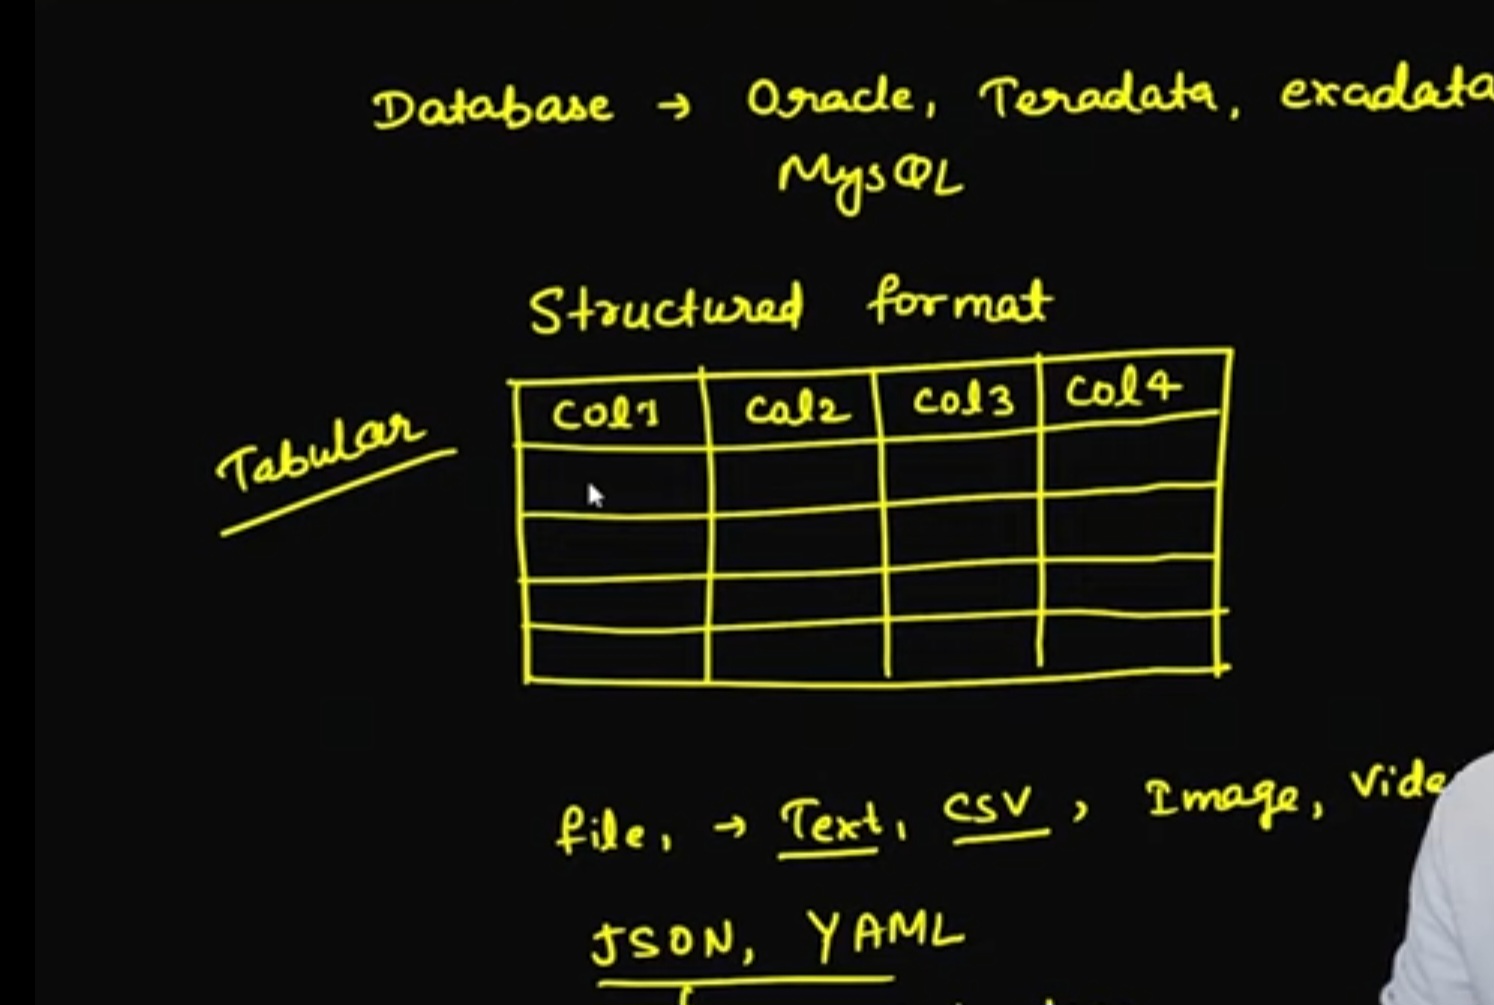 Database → Oracle, Teradata, exadata
MySQL
Structured format
Tabular
Col1 Col2 Col3 Col4
file, → Text, CSV, Image, Vide
JSON, YAML